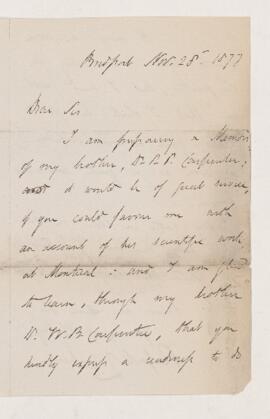 Bridport Nov. 28th 1877
Dear Sir
I am preparing a Memoir
of my brother, Dr. P. P. Carpenter;
and it would be of great service,
if you could favour me with
an account of his scientific work
at Montreal: and I am glad
to learn, through my brother
Dr. W. B. Carpenter, that you
kindly express a readiness to do